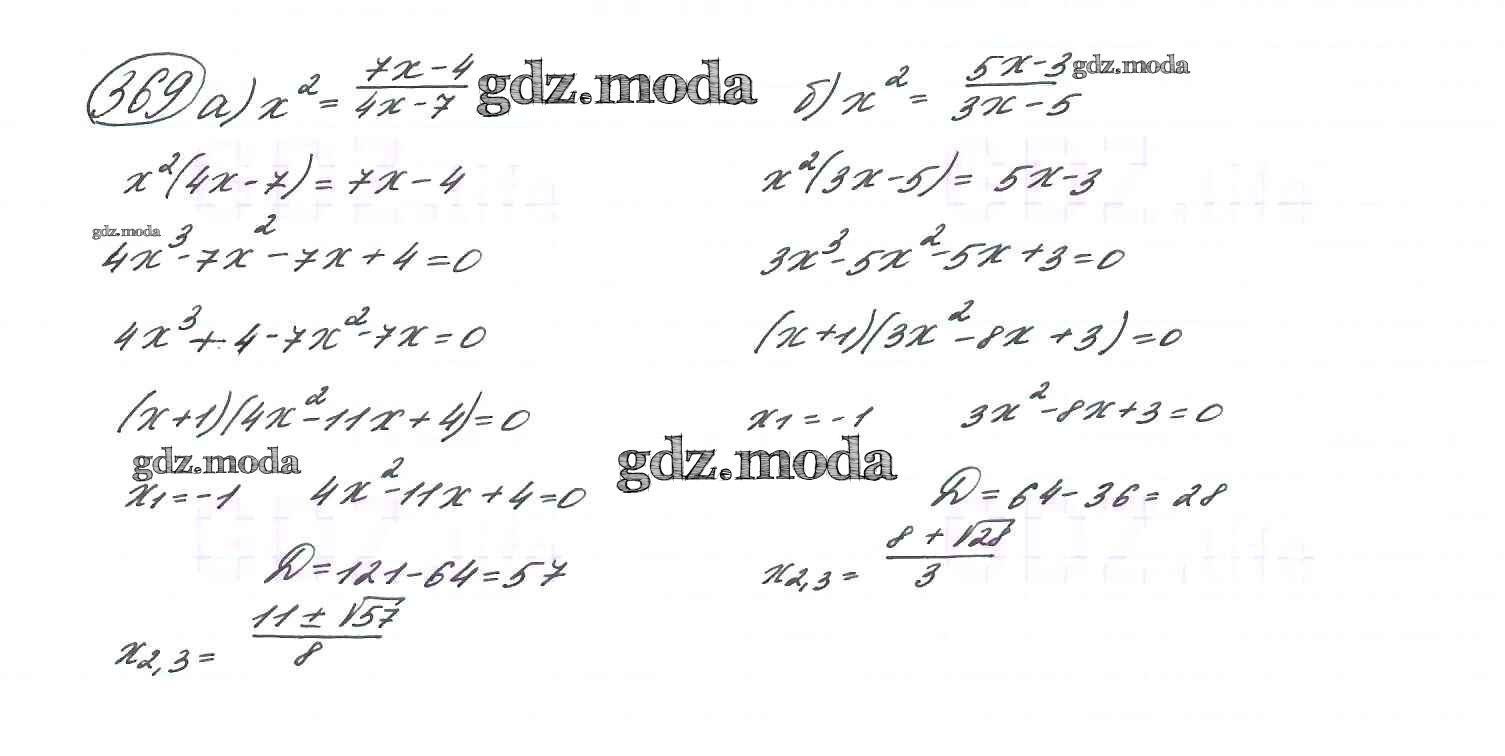 369 а) x² = (7x - 4)/(4x - 7) gdz.moda
x²(4x - 7) = 7x - 4
gdz.moda
4x³ - 7x² - 7x + 4 = 0
4x³ + 4 - 7x² - 7x = 0
(x + 1)(4x² - 11x + 4) = 0
gdz.moda
x₁ = -1 4x² - 11x + 4 = 0
D = 121 - 64 = 57
x₂,₃ = (11 ± √57)/8
б) x² = (5x - 3)/(3x - 5) gdz.moda
x²(3x - 5) = 5x - 3
3x³ - 5x² - 5x + 3 = 0
(x + 1)(3x² - 8x + 3) = 0
x₁ = -1 3x² - 8x + 3 = 0
gdz.moda
D = 64 - 36 = 28
x₂,₃ = (8 + √28)/3